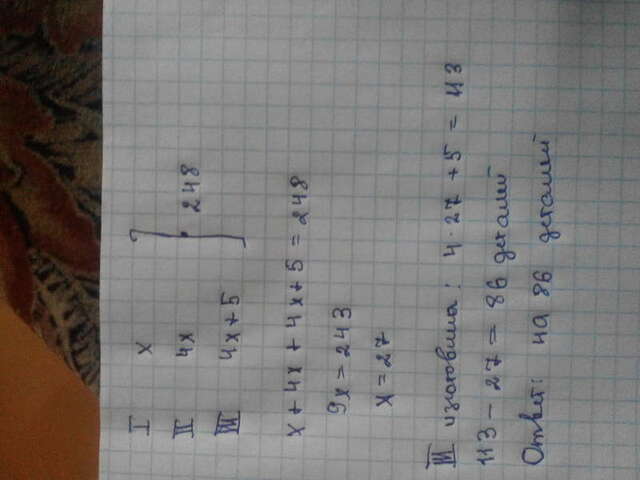 I x
II 4x } 248
III 4x+5
x + 4x + 4x + 5 = 248
9x = 243
x = 27
III изготовила: 4 · 27 + 5 = 113
113 - 27 = 86 деталей
Ответ: на 86 деталей